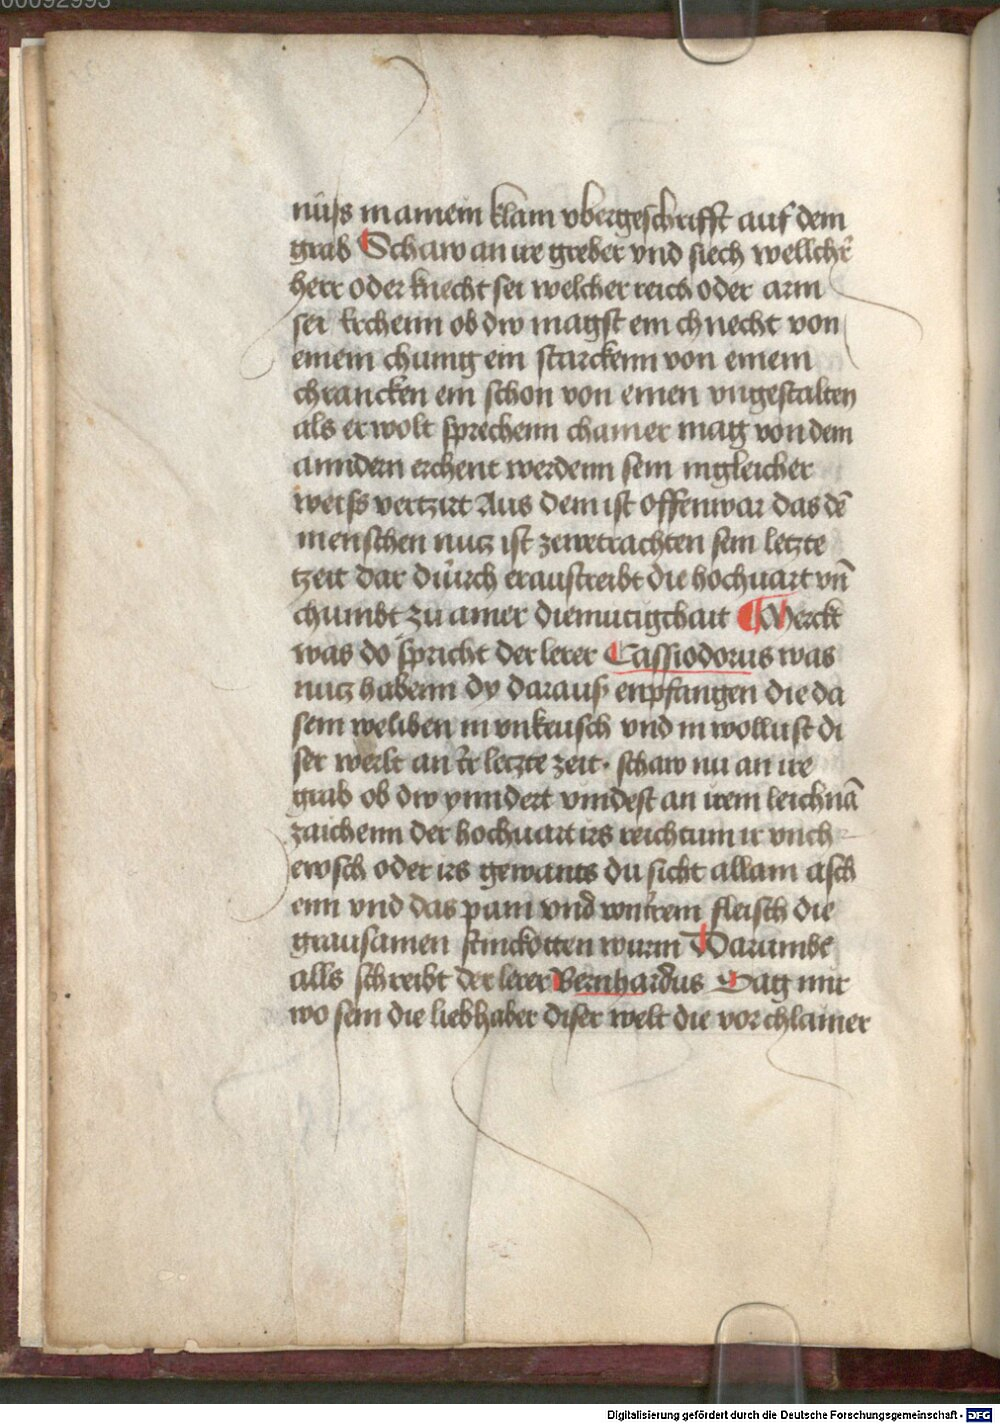 00092993
nuss in ainem klain vbergeschrifft auf dem
grab Schaw an ire greber vnd siech wellchr̄
herr oder knecht sei welcher reich oder arm
sei krchenn ob dw magst ein chnecht von
einem chunig ein starckenn von einem
chrancken ein schon von einen vngestalten
als er wolt sprechenn chainer mag von dem
anndern erchent werdenn sein ingleicher
weiss vertzirt Aus dem ist offenwar das dē
menschen nutz ist zewetrachten sein letzte
tzeit dar durch er austreibt die hochuart vn̄
chumbt zu ainer diemutigchait Merckt
was do spricht der lerer Cassiodorus was
nutz habenn dy daraus enpfangen die da
sein weliben in vnkeusch vnd in wollust di
ser werlt an ir letzte zeit · schaw nu an ire
grab ob dw ynndert vindest an irem leichnā
zaichenn der hochuart irs reichtum ir vnch
ewsch oder irs gewants du sicht allain asch
enn vnd das pain vnd wn irem fleisch die
grausamen stinckotten wurm Darumbe
alls schreibt der lerer Bernhardus Sag mir
wo sein die liebhaber diser welt die vor chlainer
Digitalisierung gefördert durch die Deutsche Forschungsgemeinschaft - DFG